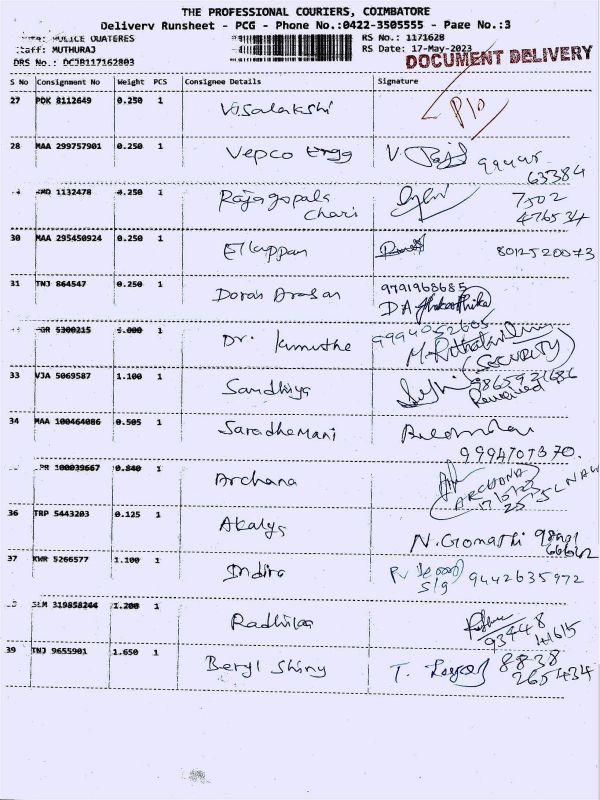 THE PROFESSIONAL COURIERS, COIMBATORE
Delivery Runsheet - PCG - Phone No.:0422-3505555 - Page No.:3
POLICE QUATERES RS No.: 1171628
Staff: MUTHURAJ RS Date: 17-May-2023
DOCUMENT DELIVERY
DRS No.: DCJB117162803
S No Consignment No Weight PCS Consignee Details Signature
27 PDK 8112649 0.250 1 Visalakshi P/O
28 MAA 299757901 0.250 1 Vepco Engg V.
63384
1132478 0.250 1 Rajagopala 7502
Chari 476534
30 MAA 295450924 0.250 1 Ellappan 8012520073
31 TNJ 864547 0.250 1 Dorai Arasan 9791968685
5300215 5.000 1 Dr. Kumuthe 9994052605
(SECURITY)
33 VJA 5069587 1.100 1 Sandhiya 9865931686
Received
34 MAA 100464086 0.505 1 Saradhemani
9994707370.
100039667 0.840 1 Archana ARCHANA
17/5/23
36 TRP 5443203 0.125 1 Akalya N. Gomathi
37 KWR 5266577 1.100 1 Indira 9442635972
S/g
SLM 319858244 1.200 1 Radhika
93448 141615
39 TNJ 9655901 1.650 1 Beryl Shiny T. 8838
265434